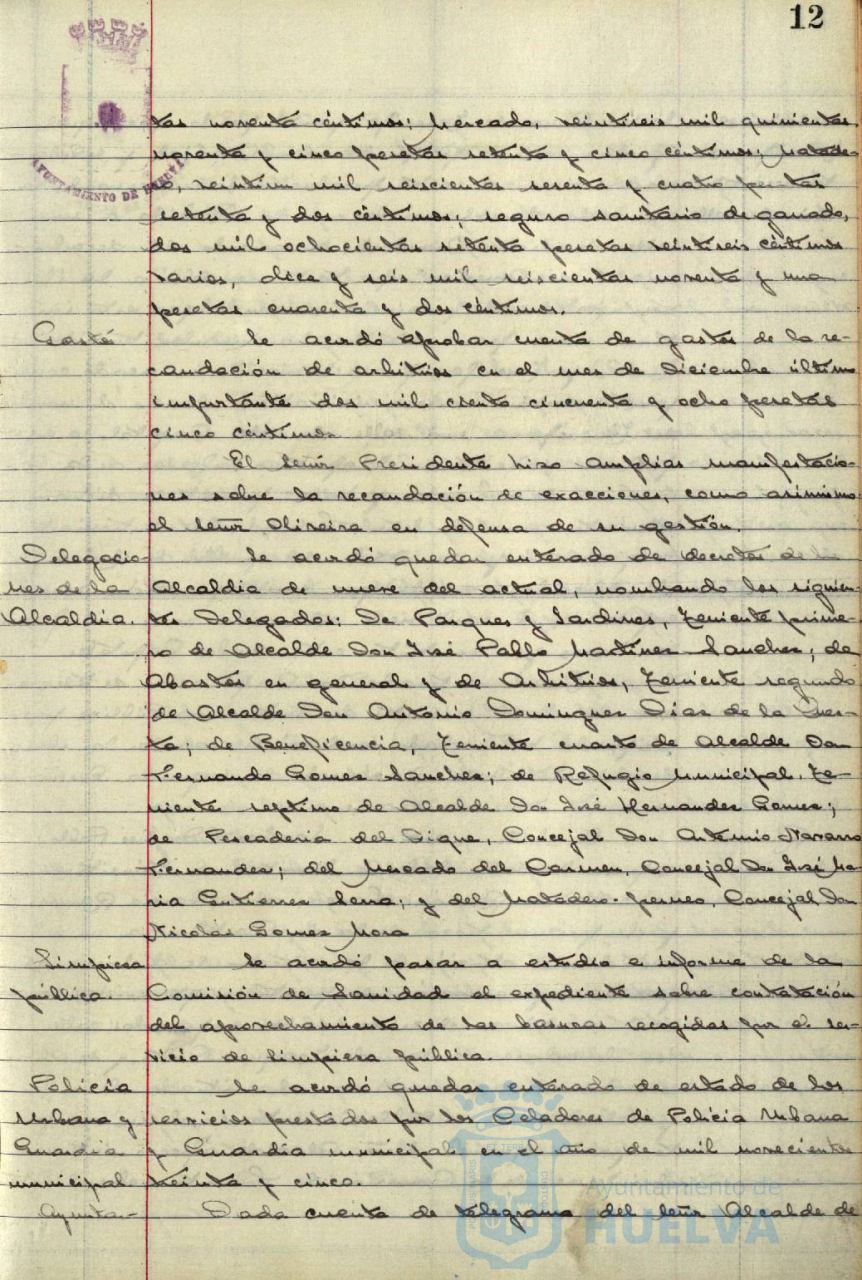 12
AYUNTAMIENTO DE HUELVA
tas noventa céntimos; Mercado, veintiseis mil quinientas
noventa y cinco pesetas setenta y cinco céntimos; Matade-
ro, veintiun mil seiscientas sesenta y cuatro pesetas
setenta y dos céntimos; seguro sanitario de ganado,
dos mil ochocientas setenta pesetas veintiseis céntimos
varios, diez y seis mil seiscientas noventa y una
pesetas cuarenta y dos céntimos.
Se acordó aprobar cuenta de gastos de la re-
caudación de arbitrios en el mes de Diciembre último
importante dos mil ciento cincuenta y ocho pesetas
cinco céntimos
El Señor Presidente hizo amplias manifestacio-
nes sobre la recaudación de exacciones, como asimismo
el Señor Oliveira en defensa de su gestión.
Delegacio-
nes de la
Alcaldia.
Se acordó quedar enterado de decretos de la
Alcaldia de nueve del actual, nombrando los siguien-
tes Delegados: De Parques y Jardines, Teniente prime-
ro de Alcalde Don José Pablo Martinez Sanchez; de
Abastos en general y de Arbitrios, Teniente segundo
de Alcalde Don Antonio Dominguez Diaz de la
de Beneficencia, Teniente cuarto de Alcalde Don
Fernando Gomez Sanchez; de Refugio Municipal, Te-
niente septimo de Alcalde Don José Hernandez Gomez;
de Pescaderia del Dique, Concejal Don Antonio Navarro
Fernandez; del Mercado del Carmen, Concejal Don José Ma-
ria Gutierrez Serra; y del Matadero, Concejal Don
Nicolás Gomez Mora
Limpieza
pública.
Se acordó pasar a estudio e informe de la
Comisión de Sanidad el expediente sobre contatación
del aprovechamiento de las basuras recogidas por el ser-
vicio de limpieza pública.
Policía
Urbana y
Guardia
municipal
Se acordó quedar enterado de estado de los
servicios prestados por los Celadores de Policia Urbana
y Guardia municipal en el año de mil novecientos
treinta y cinco.
Ayunta-
Dada cuenta de telegrama del Señor Alcalde de
Ayuntamiento de
HUELVA